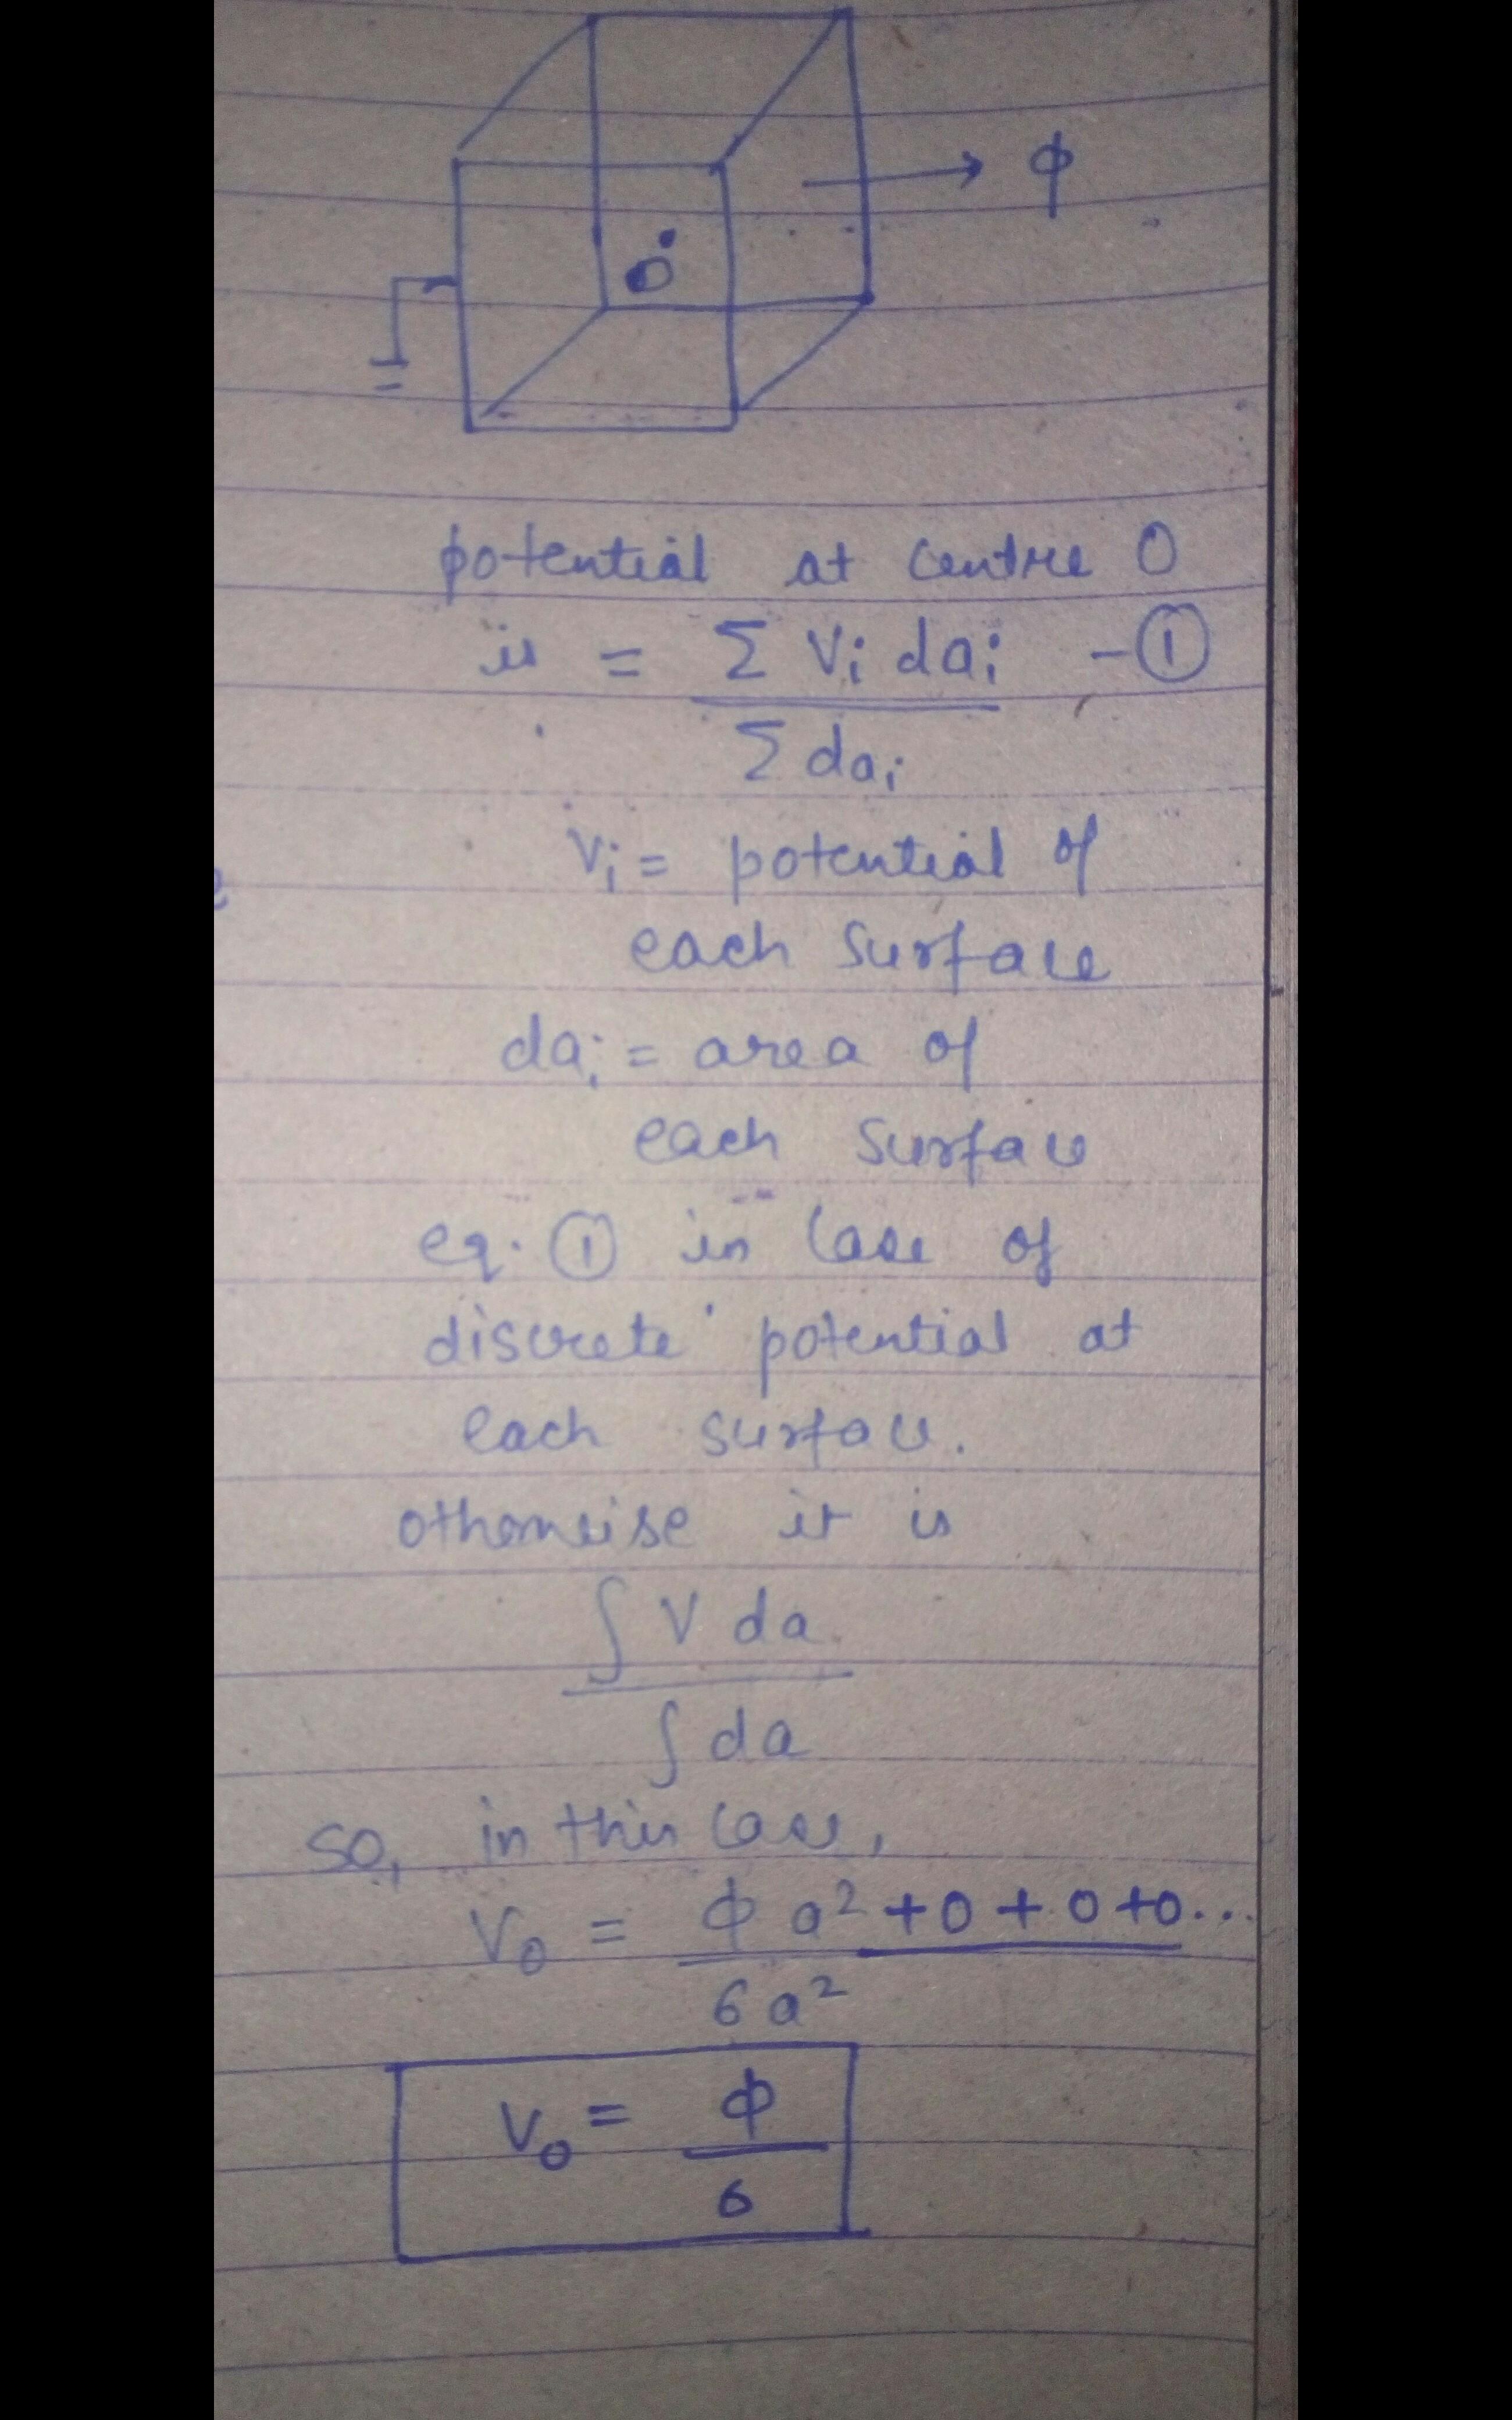 ϕ
O
potential at centre O
is = Σ Vi dai - ①
Σ dai
Vi = potential of
each surface
dai = area of
each surface
eq. ① in case of
discrete potential at
each surface.
otherwise it is
∫ V da
∫ da
so, in this case,
V₀ = ϕ a² + 0 + 0 + 0...
6 a²
V₀ = ϕ
6